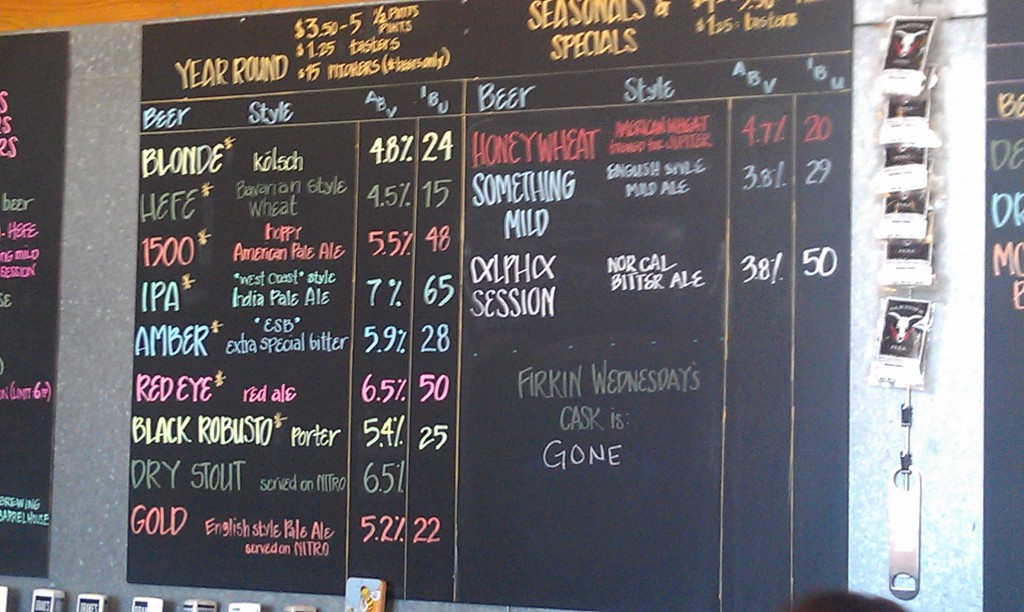 $3.50-5 ½ PINTS
PINTS
$1.25 tasters
YEAR ROUND $15 PITCHERS (*beers only)
BEER Style ABV IBU
BLONDE* kölsch 4.8% 24
HEFE* Bavarian style Wheat 4.5% 15
1500* hoppy American Pale Ale 5.5% 48
IPA* "West Coast" style India Pale Ale 7% 65
AMBER* "ESB" extra special bitter 5.9% 28
RED EYE* red ale 6.5% 50
BLACK ROBUSTO* Porter 5.4% 25
DRY STOUT served on NITRO 6.5%
GOLD English style Pale Ale served on NITRO 5.2% 22
SEASONALS &
SPECIALS
$1.25 tasters
BEER Style ABV IBU
HONEYWHEAT AMERICAN WHEAT 4.7% 20
SOMETHING MILD ENGLISH STYLE MILD ALE 3.8% 29
ALPHA SESSION NOR CAL BITTER ALE 3.8% 50
FIRKIN WEDNESDAY'S
CASK is:
GONE
beer
- HEFE
MILD
SESSION
(LIMIT 6
BREWING
BARREL HOUSE